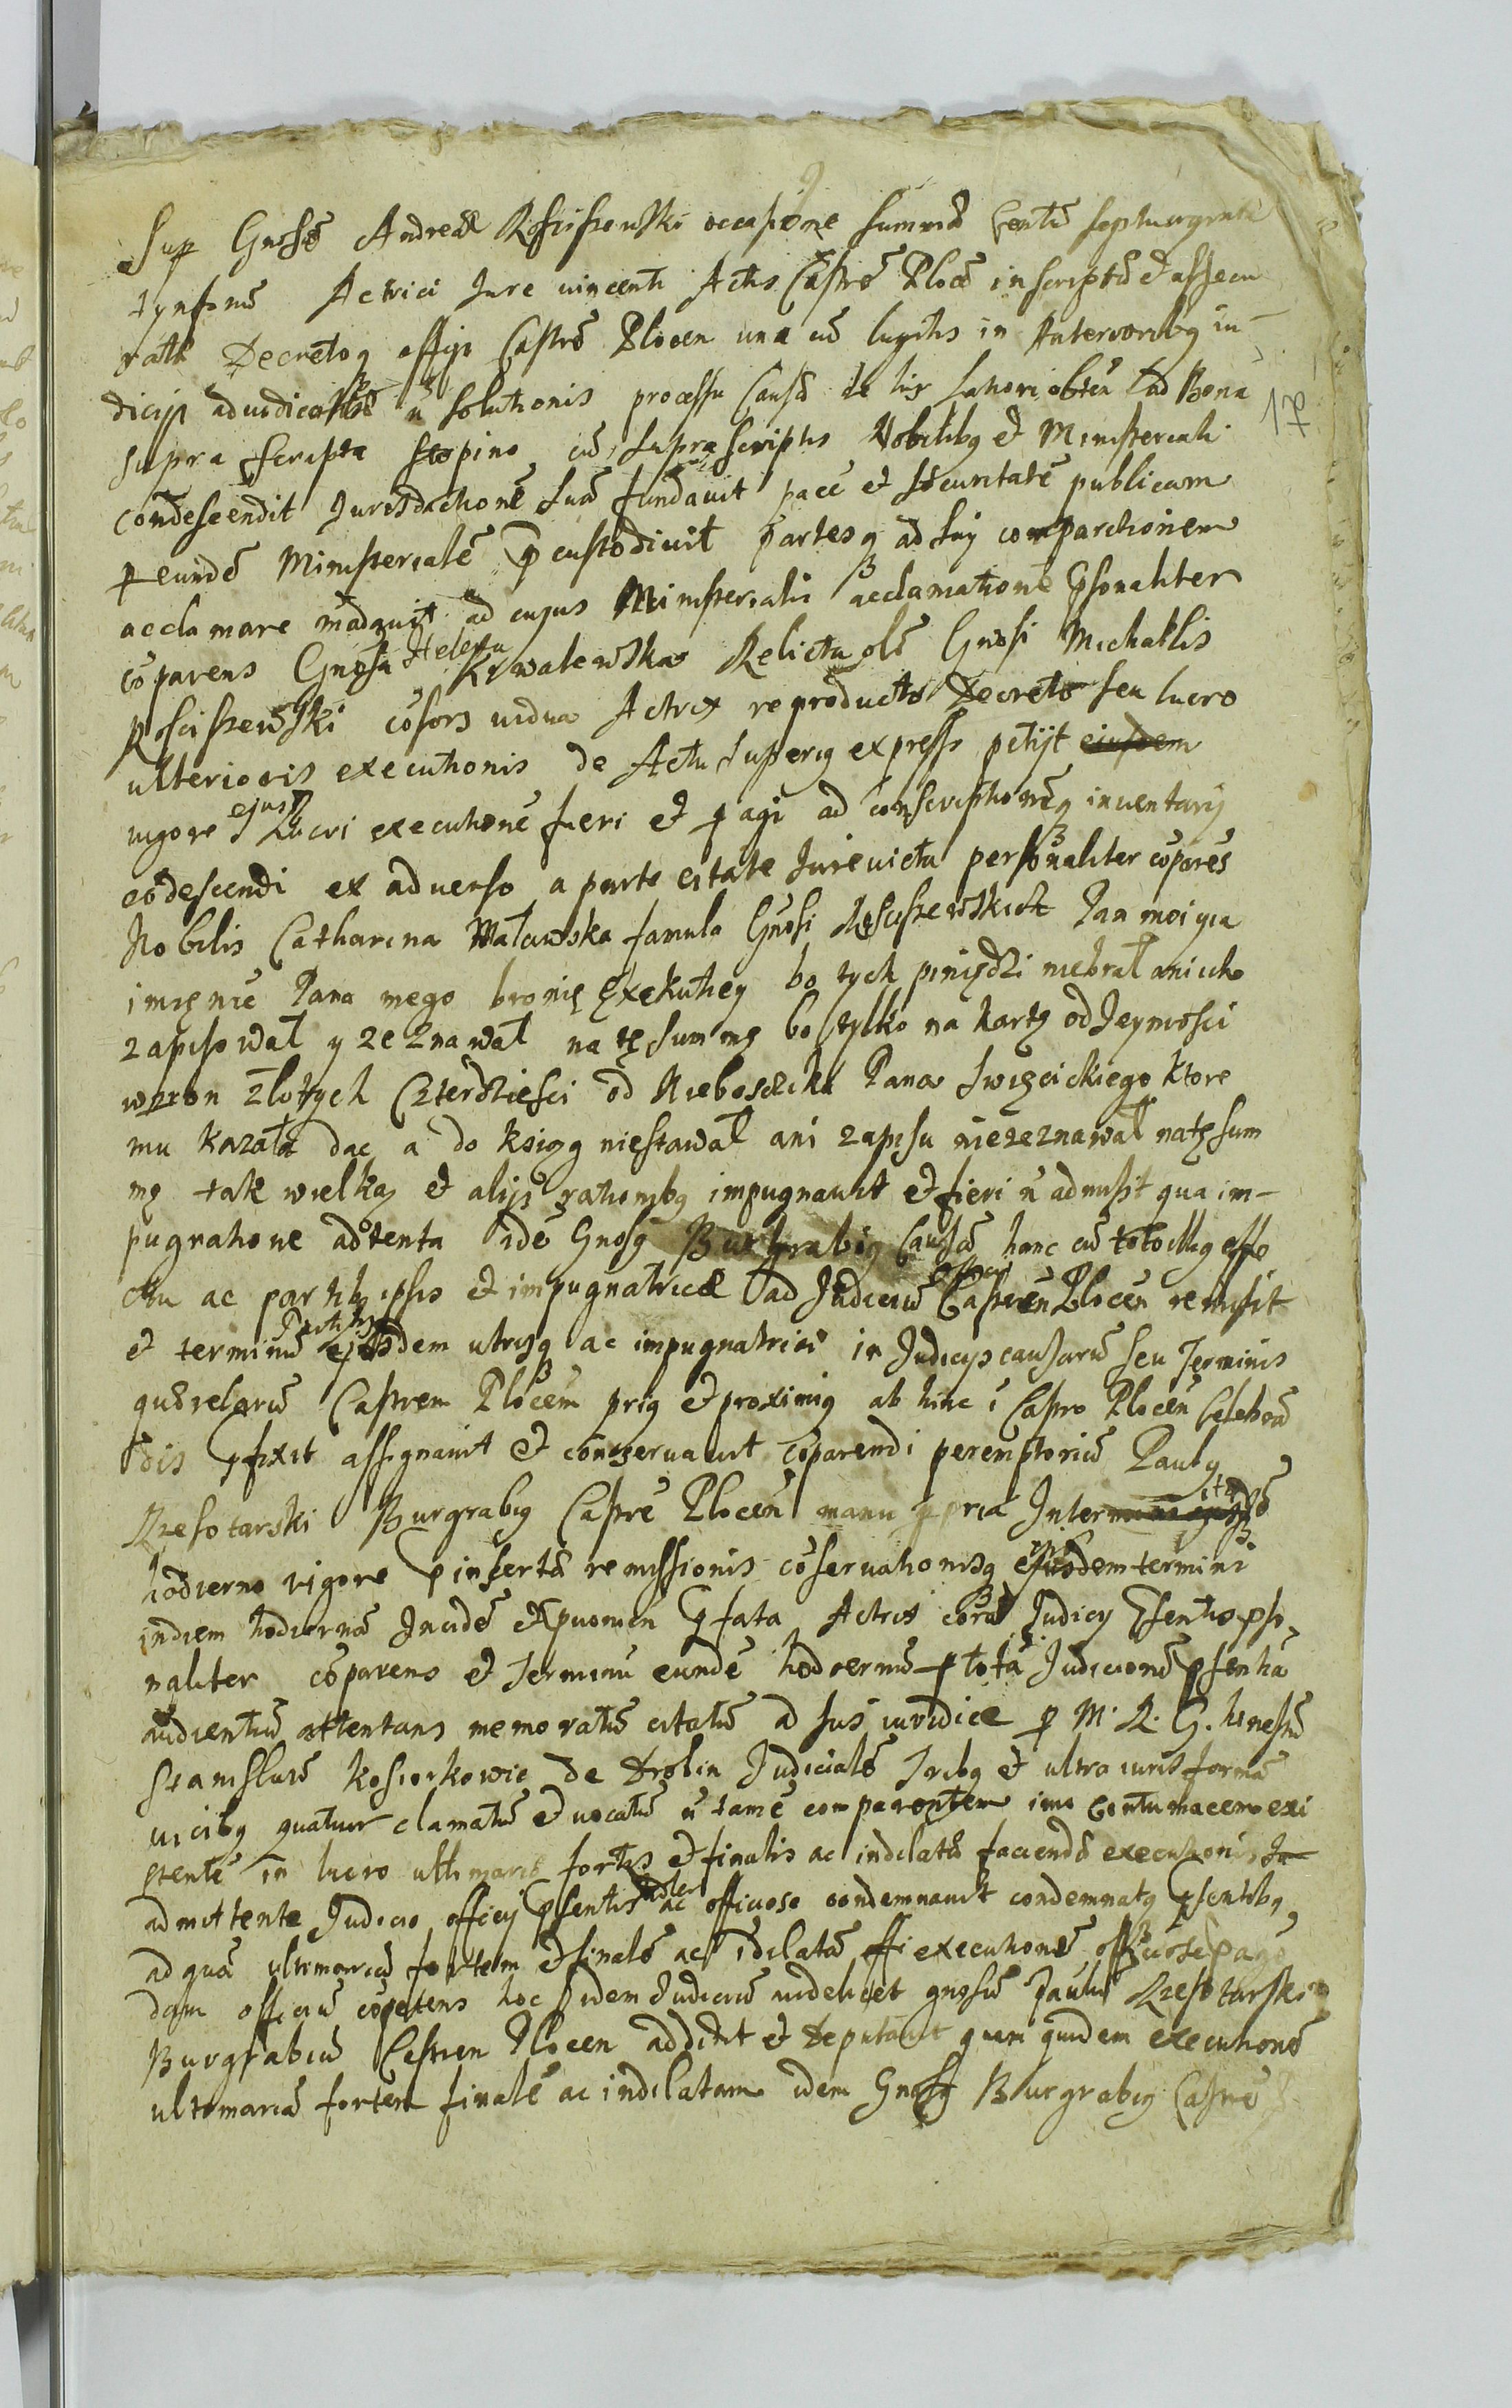 Sup Gnoso Andrea Rosciszewski occasione summa Centu septuaginta
tynfonu Actrici Jure vincenti Actis Castre Ploce inscripta et assecu
rata Decretoq officii Castre Plocen una cu in Anterioribq iu-
dicijs adiudicatae ñ solutionis processu Causa de his obten ad Bona
supra scripta Stopino cu supra scriptis Nobilibq et Ministeriali
condescendit Jurisdictione sua fundavit pace et securitate publicam
p eunde Ministeriale pcustodivit partesq ad sui comparitionem
acclamare madavit ad cujus Ministerialis acclamatione psonaliter
coparens Gnosa Helena Kowalewska Relicta oli Gnosi Michaelis
Rosciszewski cosors vidua Actrix reproducto Decreto seu lucro
ulterioris executionis de Actu superiq expresso petijt eiusdem
vigore ejusd Lucri executione fieri et pagi ad conscriptioneq inventarij
codescendi ex adverso a parte citate Jurevicta personaliter copares
Nobilis Catharina Małowska famula Gnosi Rosciszewskich Pan moi y ia
imięnie Pana mego bronię Exekutiey bo tych piniędzi niebrał ani ich
zapisował y zeznawał na tę summę bo tylko na kartę od Jeymosci
wzion złotych Czterdziesci od Nieboszczika Pana Swięcickiego ktore
mu kazała dac a do ksiąg niestawał ani zapisu niezeznawał natęsum
mę tak wielką et alijs rationibq impugnavit et fieri ñ admisit qua im-
pugnatione adtenta ide Gnosq Burgrabiq Causa hanc cu toto illiq effe
ctu ac partibq ipsis et impugnatrice ad Judiciu Officii Castren Plocen remisit
et terminu Partibq ejusdem utrisq ac impugnatrici in Judicijs causaru seu Terminis
querelaru Castren Plocem priq et proximiq ab hinc i Castro Plocen Celebra
dis pfixit assignavit et conservavit coparendi peremptoriu Paulq
Rzeszotarski Burgrabiq Castre Plocen manu ppria Intermino itaq
hodierno vigore pinserta remissionis coservationisq ejusdem termini
indiem hodierna Incide pfata Actrix cora Judicij psentis pso
naliter coparens et Terminu eunde hodiernu p tota Judicione psentia
audientiu attentans memoratu citatu ad sus iuridice p M. R. G. hnestu
Stanislaw Kosiorkowic de Drobin Judiciale Tribq et ultra iuris forma
vicibq quatuor clamatu et vocatu ñ tame comparentem imo Contumacem exi
stente in lucro ultimaria fortis et finalis ac indilata faciendo executionis In
admittente Judicio officij psentis ac officiose condemnavit condemnatq psentibq
ad qua ultimaria fortem et finale ac idilata ffi executione officiose pagē
dam officiu copetens hoc idem Judiciu videlicet gnosu Paulu Rzeszotarski
Burgrabiu Castren Plocen addidit et deputavit quam quidem executione
ultimaria fortem finale ac indilatam idem Gnosq Burgrabiq Castre
17